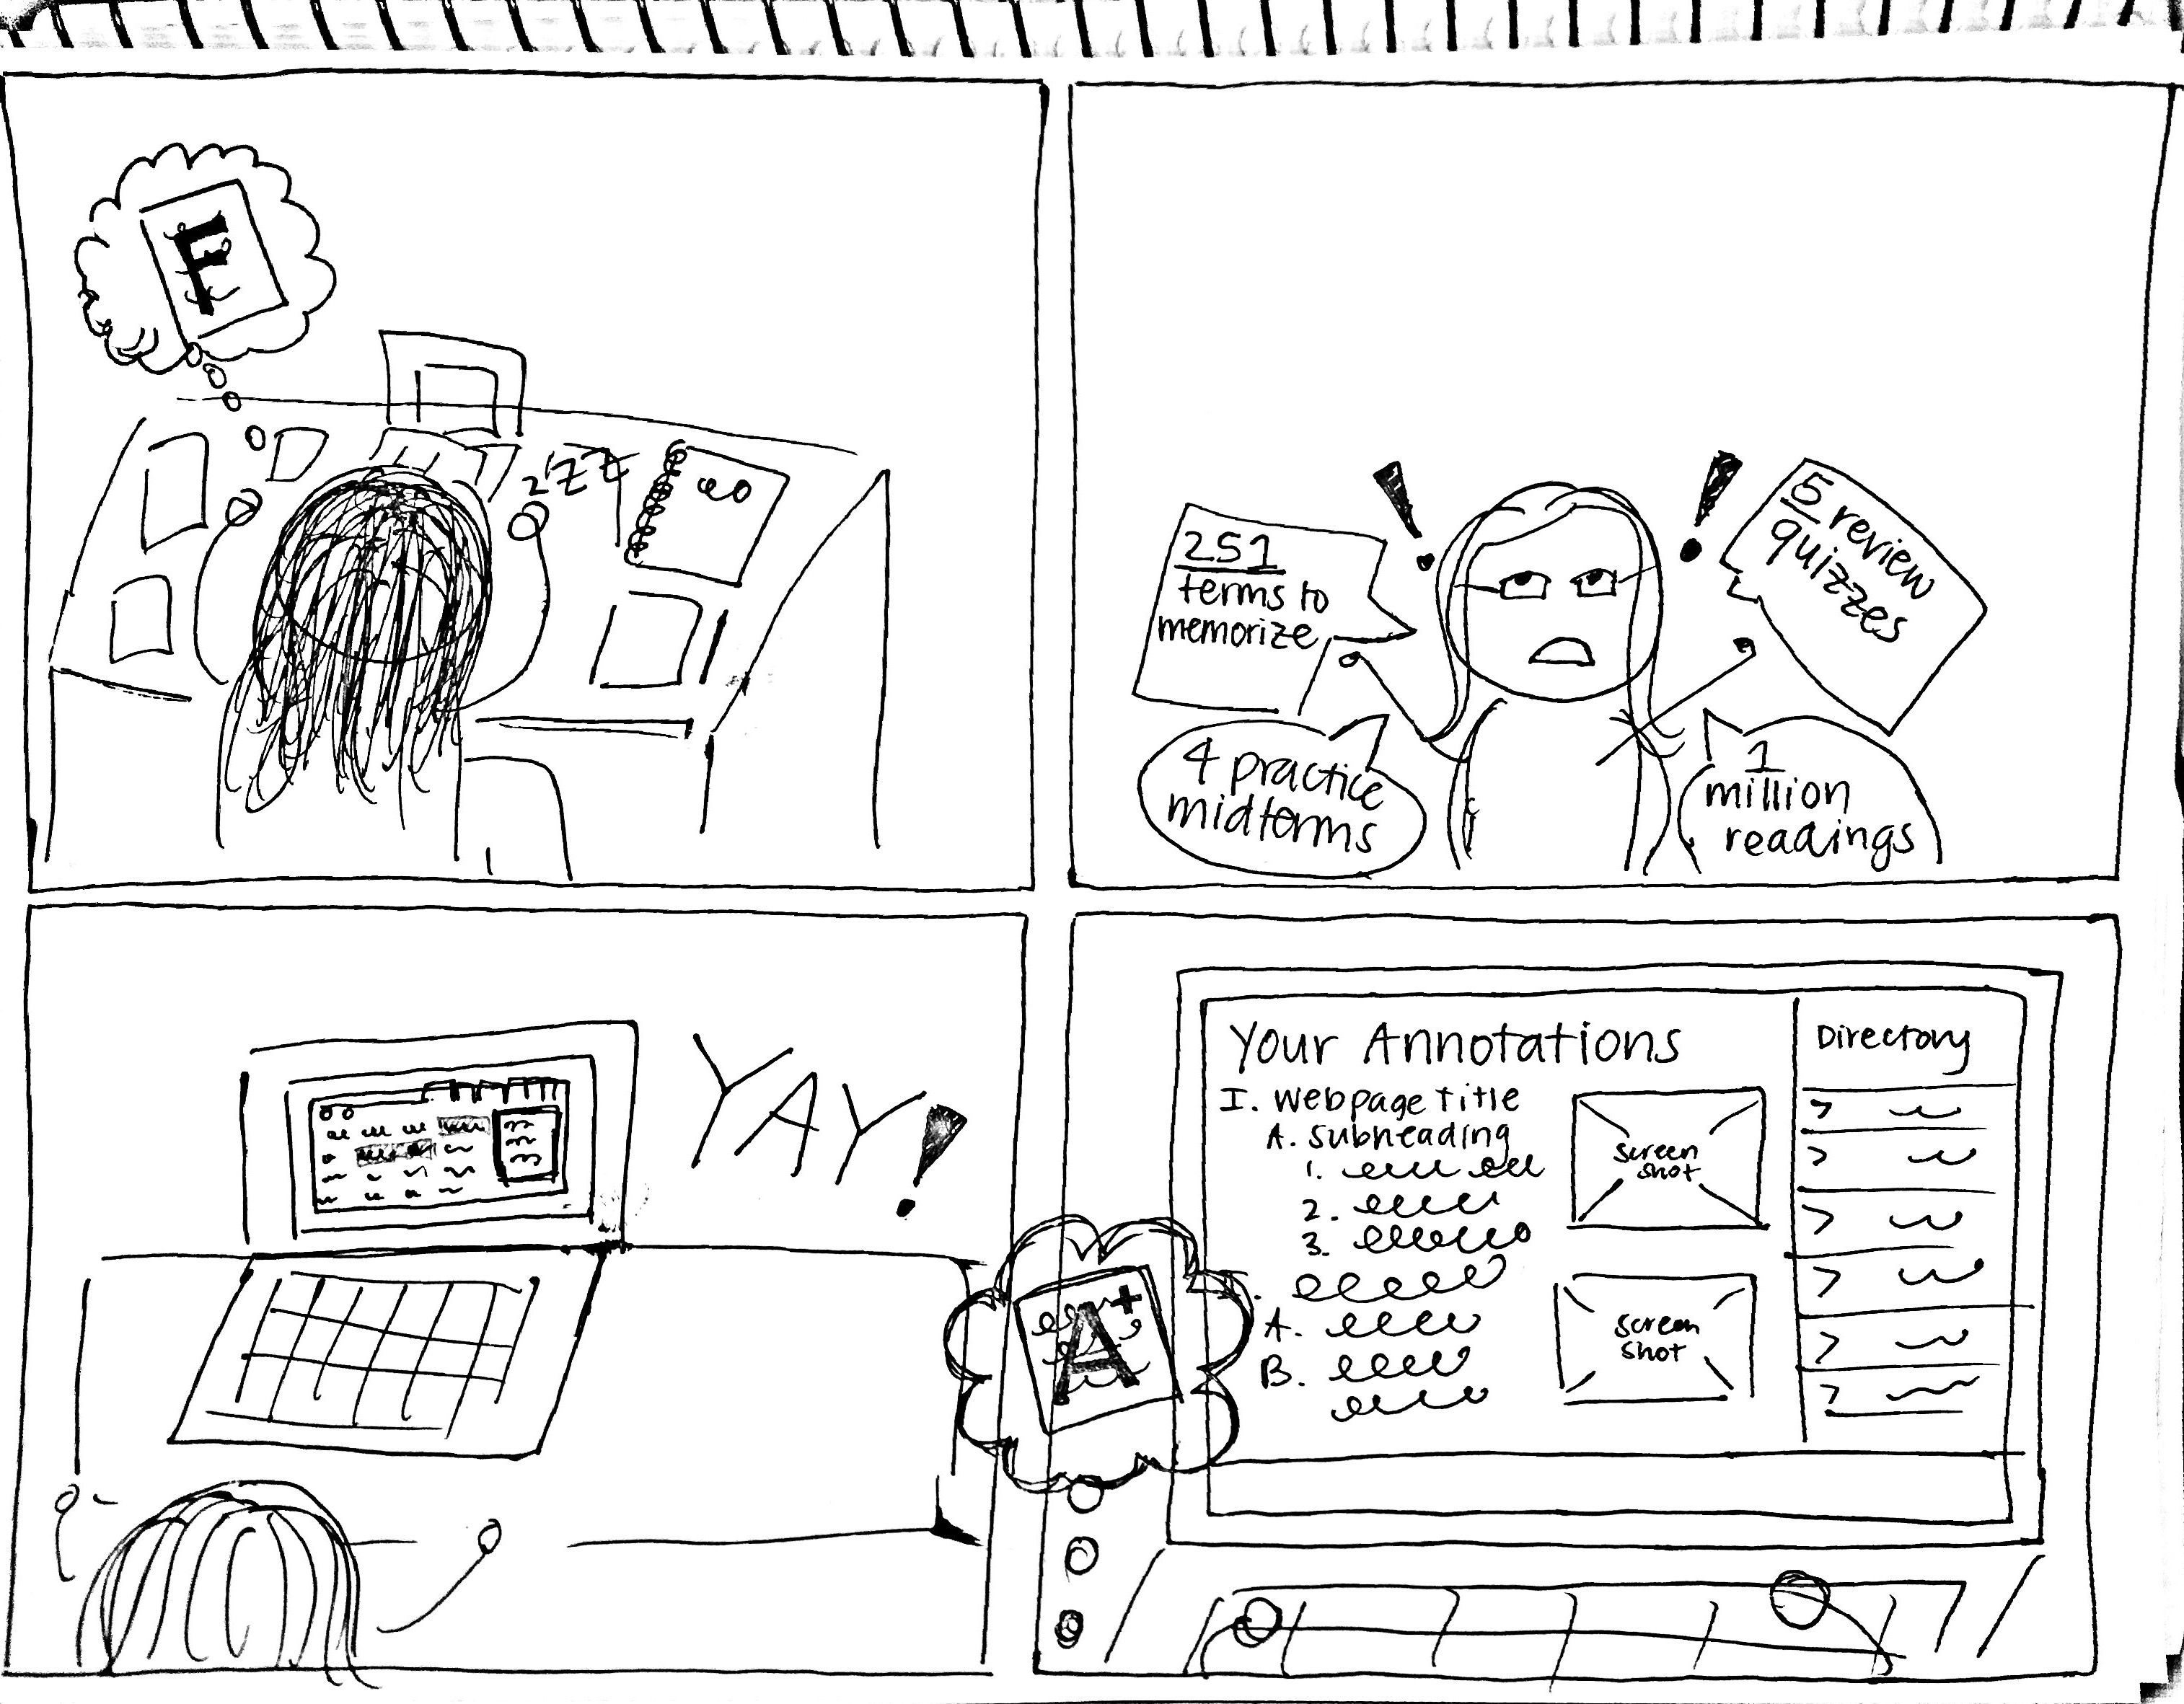 F
zzz
251
terms to
memorize
!
!
5 review
quizzes
4 practice
midterms
1
million
readings
YAY!
A+
Your Annotations
I. Webpage title
A. Subheading
1.
2.
3.
A.
B.
screen
shot
screen
shot
Directory
>
>
>
>
>
>